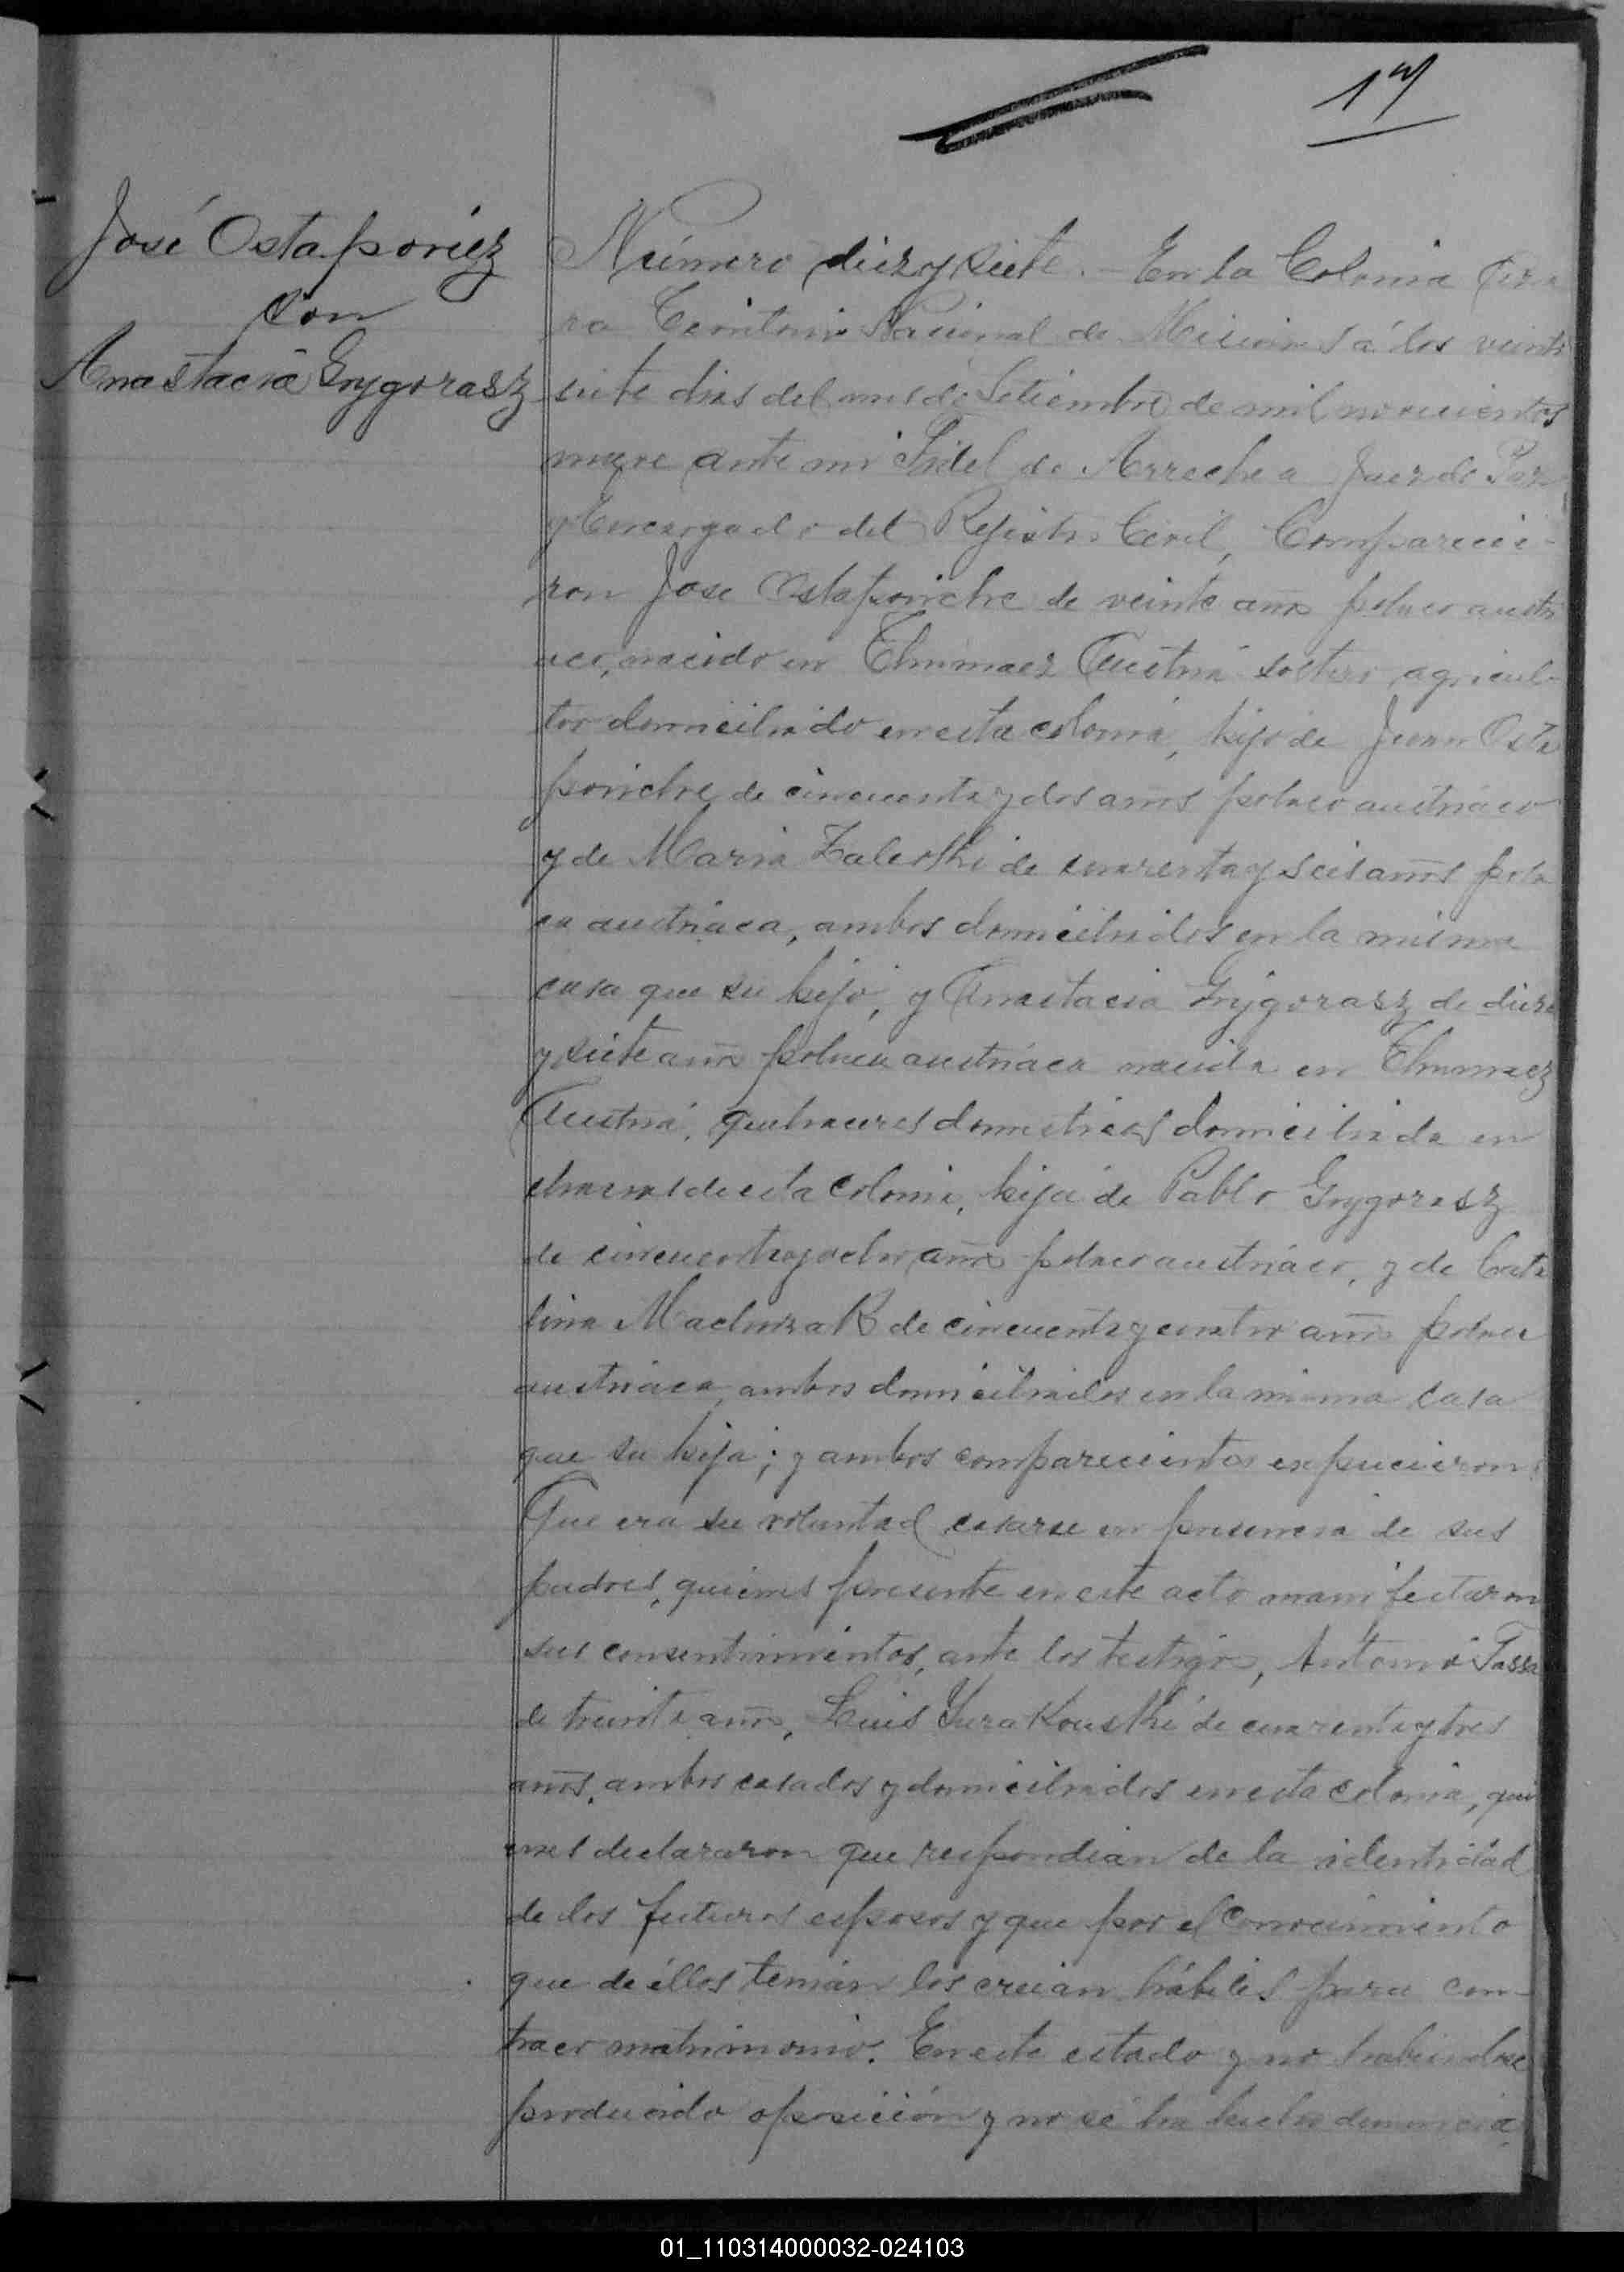 17
José Ostaporiez
con
Anastacia Grygorasz
Número diez y siete. - En la Colonia Azá
ra Territorio Nacional de Misiones á los veinti
siete dias del mes de Setiembre de mil novecientos
nueve ante mi Fidel de Arrechea Juez de Paz
y Encargado del Rejistro Civil, Comparecie-
ron Jose Ostaponiche de veinte años polaco austri
aco, nacido en Thumaez Austria soltero agricul-
tor domiciliado en esta colonia, hijo de Juan Osta
poniche de cincuenta y dos años polaco austriaco
y de Maria Zaleski de cuarenta y seis años pola
ca austriaca, ambos domiciliados en la misma
casa que su hijo, y Anastacia Grygorasz de diez
y siete años polaca austriaca nacida en Thumaez
Austria, quehaceres domesticos domiciliada en
de esta colonia, hija de Pablo Grygorasz
de cincuenta y ocho años polaco austriaco, y de Cata
lina de cincuenta y cuatro años polaca
austriaca ambos domiciliados en la misma casa
que su hija; y ambos comparecientes expucieron:
Que era su voluntad casarse en presencia de sus
padres, quienes presente en este acto manifestaron
sus consentimientos, ante los testigos, Antonio Tassa
de treinta años, Luis Yurakouski de cuarenta y tres
años, ambos casados y domiciliados en esta colonia, qui
enes declararon que respondian de la identidad
de los futuros esposos y que por el conocimiento
que de éllos tenian los creian hábiles para con-
traer matrimonio. En este estado y no habiendose
producido oposición y no se ha hecho denuncia
01_110314000032-024103